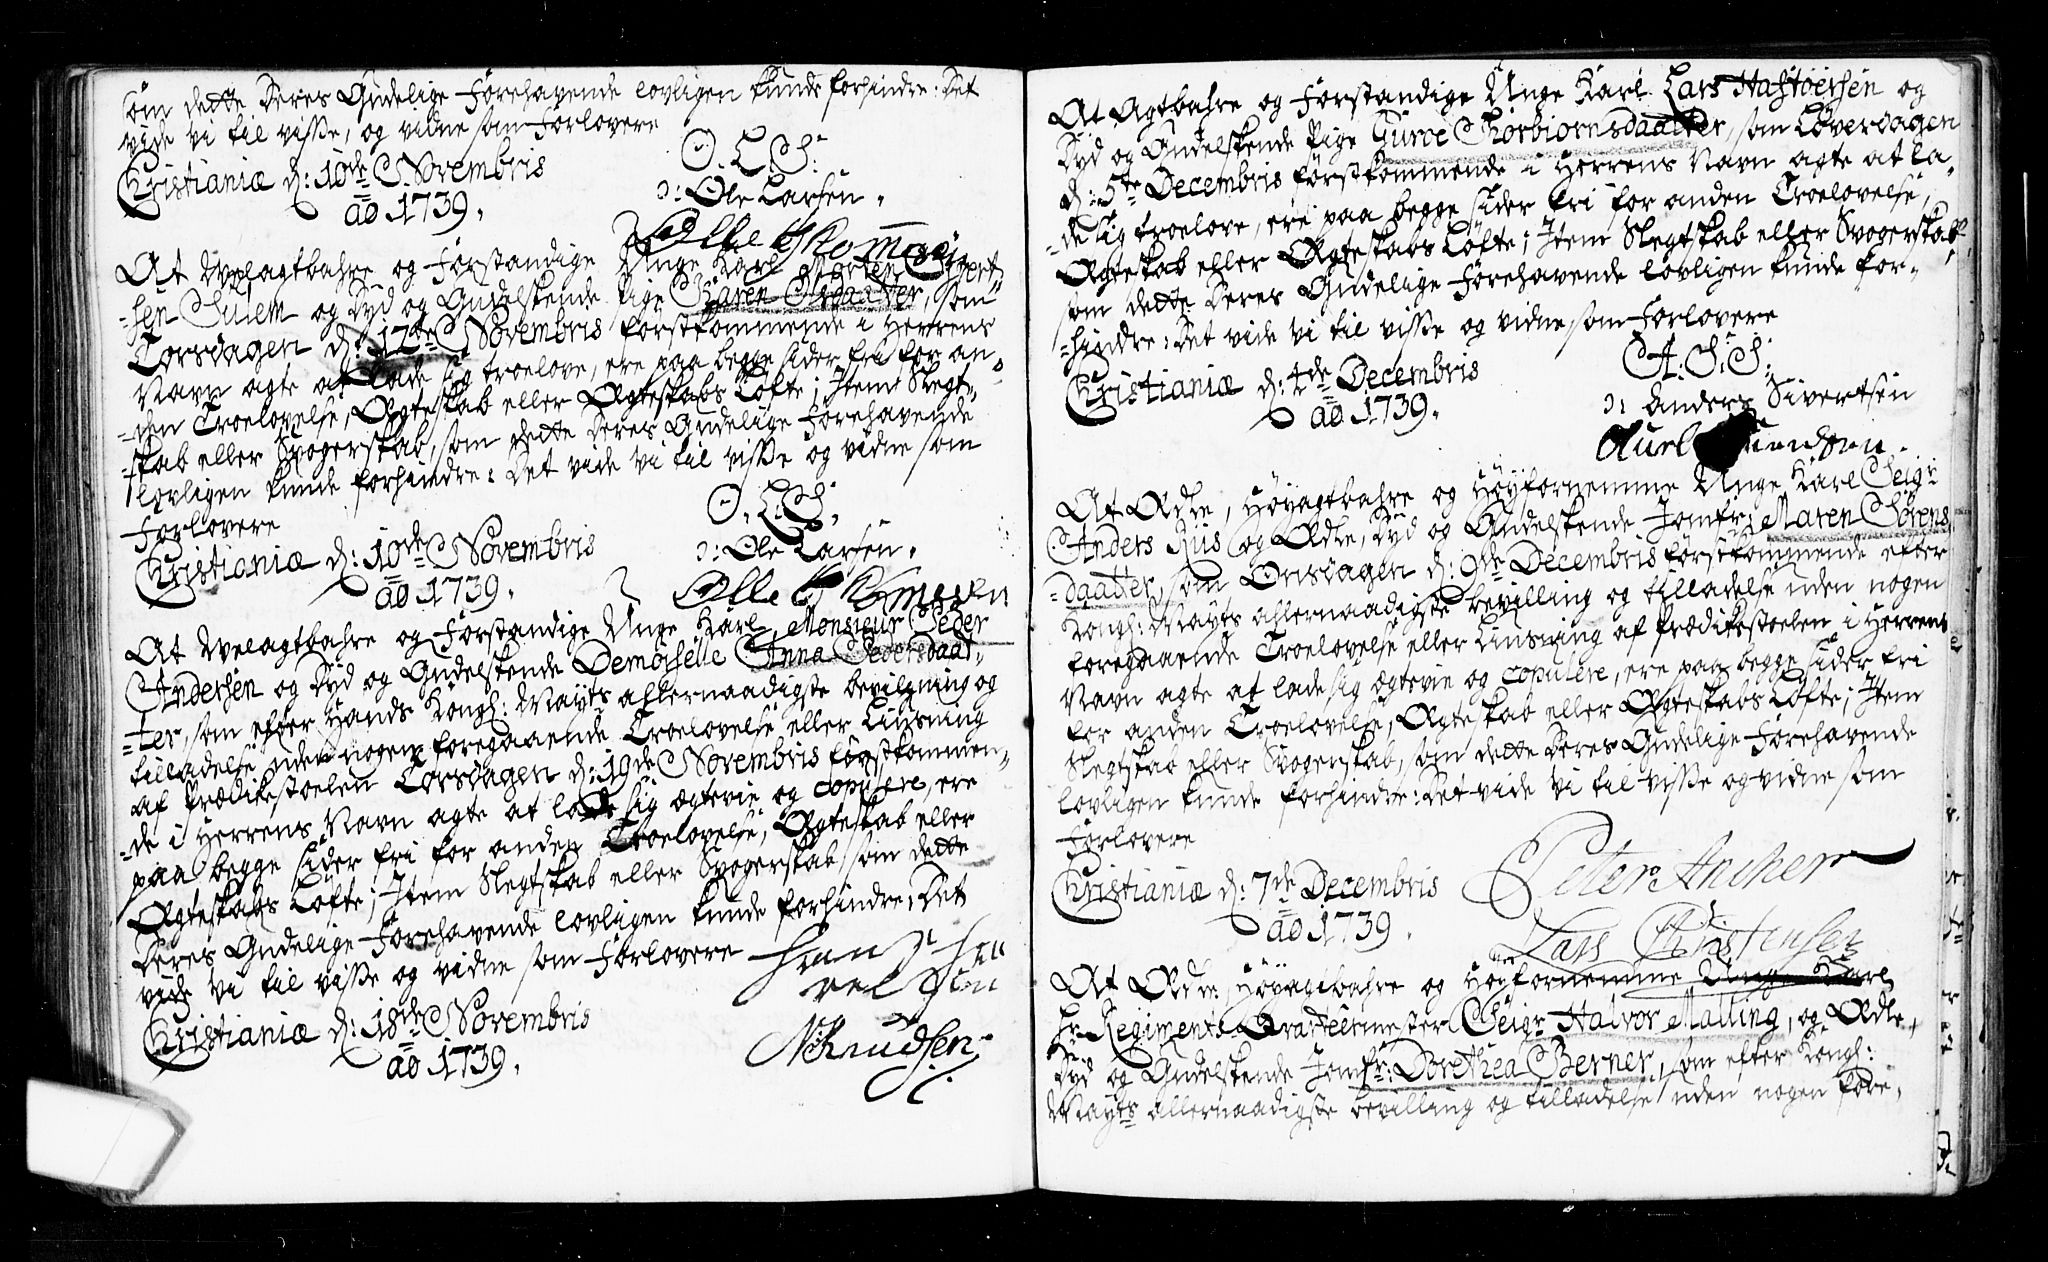 som dette Deres Gudelige Forehavende lovligen kunde forhindre: Det
vide vi til visse, og vidne som Forlovere
Christianiæ d: 10de Novembris
ao 1739.
O. L. S:
ɔ: Ole Larsen.
At Welagtbahre og Forstandige Unge Karl Morten
sen Sillem og Dyd og Gudelskende Pige Karen, som
Torsdagen d: 12te Novembris førstkommende i Herrens
Navn agte at lade sig troelove, ere paa begge sider fri for an-
den Troelovelse, Ægteskab eller Ægteskabs Løfte; Item Slegt-
skab eller Svogerskab, som dette Deres Gudelige Forehavende
lovligen kunde forhindre: Det vide vi til visse og vidne som
Forlovere
Christianiæ d: 10de Novembris
ao 1739.
O. L. S:
ɔ: Ole Larsen.
At Welagtbahre og Forstandige Unge Karl, Monsieur Peder
Andersen og Dyd og Gudelskende Demoiselle Anna Pedersdaat-
=ter, som efter Hands Kongl: Mayts allernaadigste bevilgning og
tilladelse uden nogen foregaaende Troelovelse eller Liusning
af Prædikestoelen Torsdagen d: 19de Novembris førstkommen-
=de i Herrens Navn agte at lade sig ægtevie og copulere, ere
paa begge sider fri for anden Troelovelse, Ægteskab eller
Ægteskabs Løfte; Item Slegtskab eller Svogerskab, som dette
Deres Gudelige Forehavende lovligen kunde forhindre: Det
vide vi til visse og vidne som Forlovere
Christianiæ d: 18de Novembris
ao 1739.
N Knudsen
At Agtbahre og Forstandige Unge Karl Lars Hastoersen og
Dyd og Gudelskende Pige Guroe Thorbiornsdaatter, som Løverdagen
d: 5te Decembris førstkommende i Herrens Navn agte at la-
=de sig troelove, ere paa begge sider fri for anden Troelovelse,
Ægteskab eller Ægteskabs Løfte; Item Slegtskab eller Svogerskab,
som dette Deres Gudelige Forehavende lovligen kunde for-
=hindre: Det vide vi til visse og vidne som Forlovere
Christianiæ d: 4de Decembris
ao 1739.
A. S. S:
ɔ: Anders Sivertsen
At Ædle, Høyagtbahre og Høyfornemme Unge Karl Seigr
Anders Riis og Ædle, Dyd og Gudelskende Jomfr: Maren Sørens
=daatter, som Onsdagen d: 9de Decembris førstkommende efter
Kongl: Mayts allernaadigste bevilling og tilladelse uden nogen
foregaaende Troelovelse eller Liusning af Prædikestoelen i Herrens
Navn agte at lade sig ægtevie og copulere, ere paa begge sider fri
for anden Troelovelse, Ægteskab eller Ægteskabs Løfte; Item
Slegtskab eller Svogerskab, som dette Deres Gudelige Forehavende
lovligen kunde forhindre: Det vide vi til visse og vidne som
Forlovere
Christianiæ d: 7de Decembris
ao 1739.
Peter Ancher
Lars Christensen
At Ædle, Høyagtbahre og Høyfornemme Unge Karl
hr Regiments Qvarteermester Seigr Halvor Malling, og Ædle,
Dyd og Gudelskende Jomfr: Dorethea Berner, som efter Kongl:
Mayts allernaadigste bevilling og tilladelse uden nogen fore-